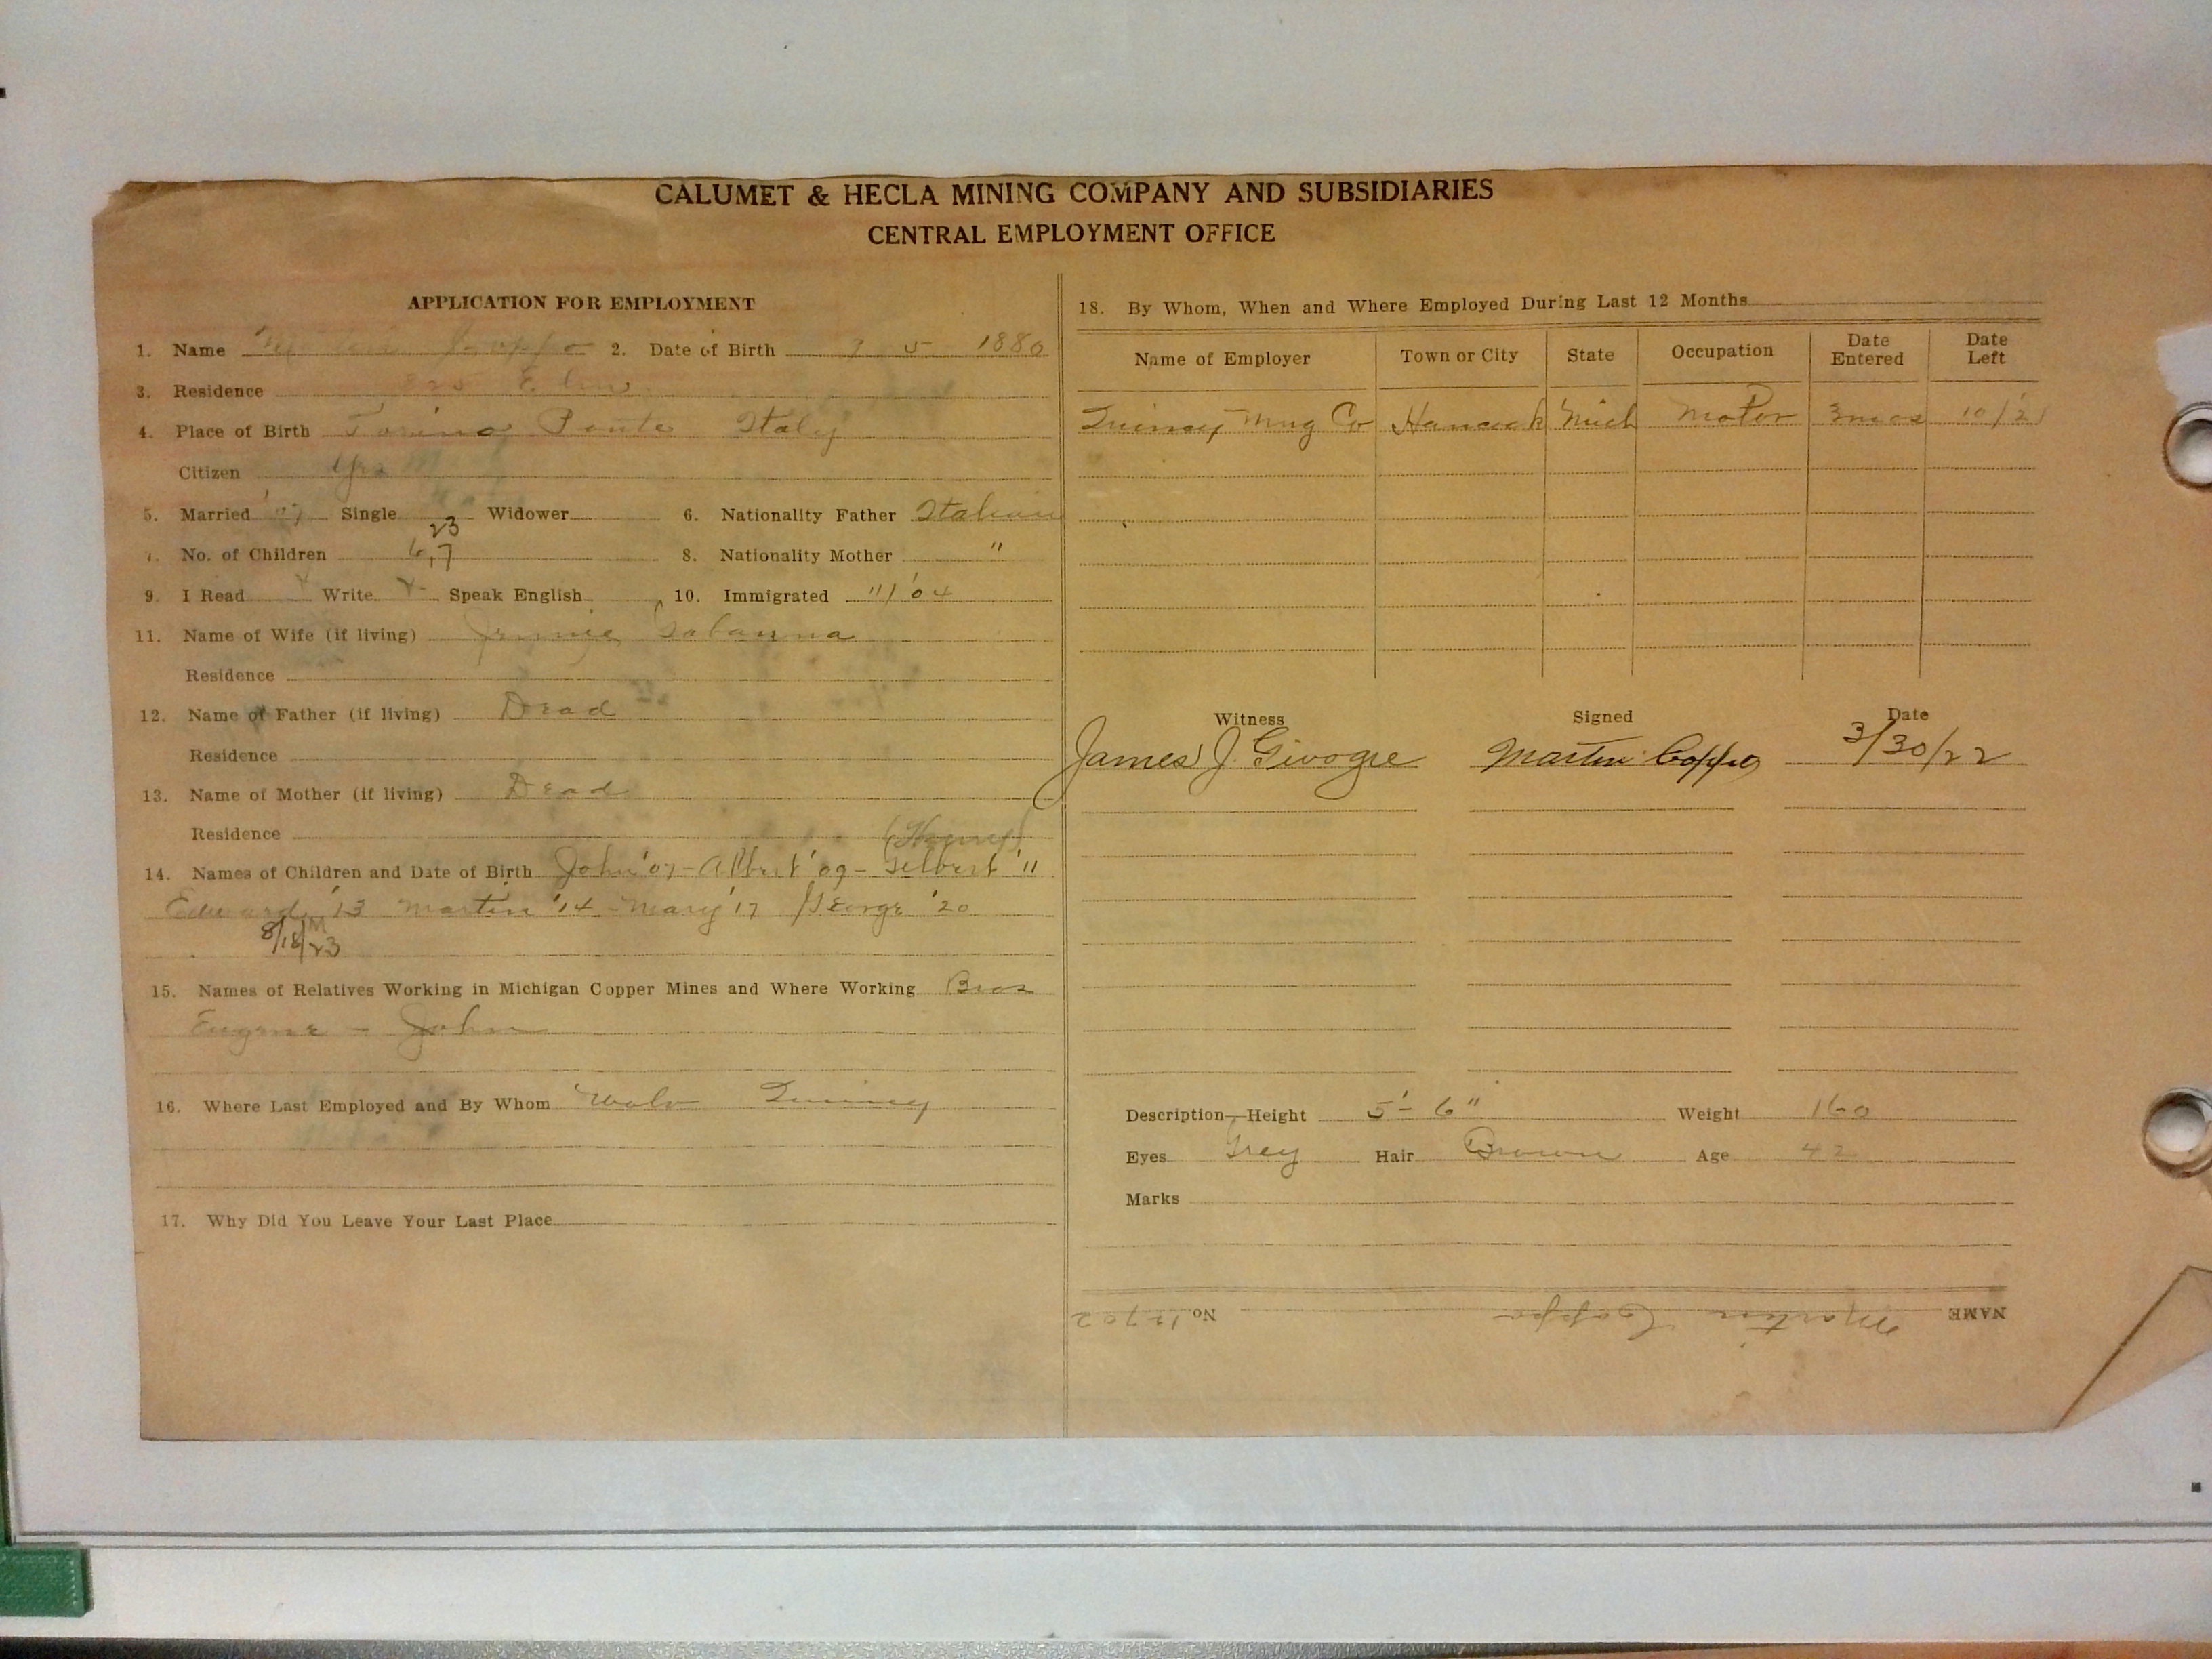 CALUMET & HECLA MINING COMPANY AND SUBSIDIARIES
CENTRAL EMPLOYMENT OFFICE
APPLICATION FOR EMPLOYMENT
1. Name Martin Coppo 2. Date of Birth 5 1880
3. Residence Elm
4. Place of Birth Torino Ponte Italy
Citizen Yes
5. Married Single Widower 6. Nationality Father Italian
23
7. No. of Children 6,7 8. Nationality Mother "
9. I Read x Write x Speak English 10. Immigrated 11/'04
11. Name of Wife (if living) Jennie
Residence
12. Name of Father (if living) Dead
Residence
13. Name of Mother (if living) Dead
Residence (Henry)
14. Names of Children and Date of Birth John '07 - Albert '09 - '11
Edward '13 Martin '14 - Mary '17 George '20
8/18/23
15. Names of Relatives Working in Michigan Copper Mines and Where Working Bros
Eugene - John
16. Where Last Employed and By Whom Wolv Quincy
17. Why Did You Leave Your Last Place
18. By Whom, When and Where Employed During Last 12 Months
Name of Employer Town or City State Occupation Date Entered Date Left
Quincy Mng Co Hancock Mich Motor 3mos 10/'21
Witness Signed Date
James J. Givogre Martin Coppo 3/30/22
Description, Height 5'- 6" Weight 160
Eyes Grey Hair Brown Age 42
Marks
NAME Martin Coppo No. 12702